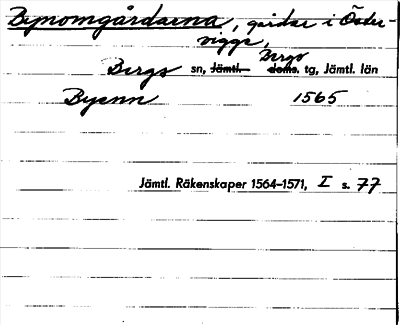 Bynomgårdarna, gårdar i Öster-
vigge,
Bergs sn, Jämtl. Bergs doms. tg, Jämtl. län
Byenn 1565
Jämtl. Räkenskaper 1564–1571, I s. 77